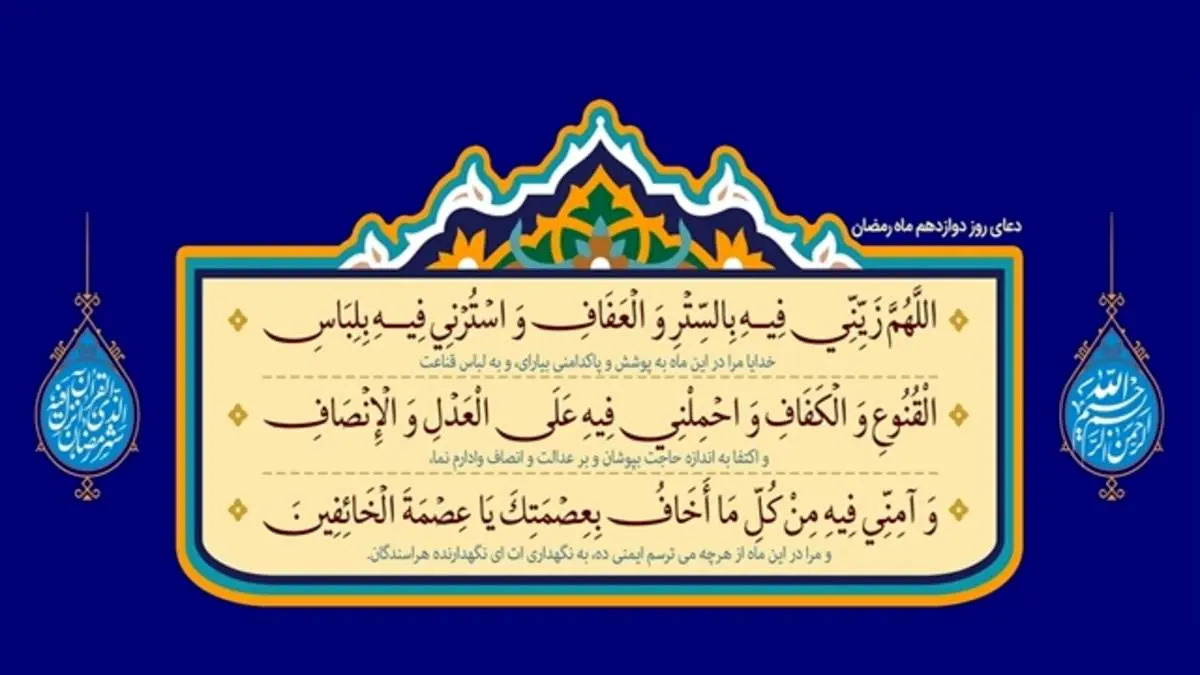 دعای روز دوازدهم ماه رمضان
اللَّهُمَّ زَيِّنِّي فِيهِ بِالسِّتْرِ وَ الْعَفَافِ وَ اسْتُرْنِي فِيهِ بِلِبَاسِ
خدایا مرا در این ماه به پوشش و پاکدامنی بیارای، و به لباس قناعت
الْقُنُوعِ وَ الْكَفَافِ وَ احْمِلْنِي فِيهِ عَلَى الْعَدْلِ وَ الْإِنْصَافِ
و اکتفا به اندازه حاجت بپوشان و بر عدالت و انصاف وادارم نما،
وَ آمِنِّي فِيهِ مِنْ كُلِّ مَا أَخَافُ بِعِصْمَتِكَ يَا عِصْمَةَ الْخَائِفِينَ
و مرا در این ماه از هرچه می ترسم ایمنی ده، به نگهداری ات ای نگهدارنده هراسندگان.
بسم الله الرحمن الرحیم
شهر رمضان الذی انزل فیه القرآن